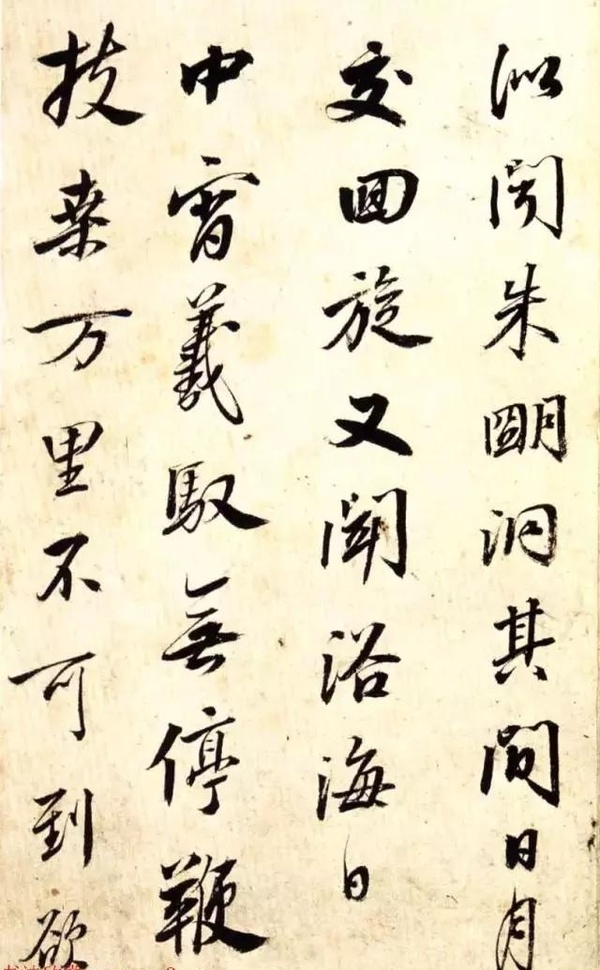 似聞朱朙洞其間日月
交回旋又聞浴海日
中宵羲馭無停鞭
扶桒万里不可到欲